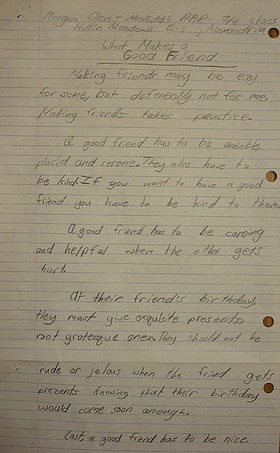 Morgan Olson - AAP 3/4 class
Hollin Meadows E.S, Alexandria
What Makes a
Good Friend
Making friends may be easy
for some, but deferently not for me.
Making friends takes practice.
A good friend has to be amiable,
placid and serene. They also have to
be kind. If you want to have a good
friend you have to be kind to them.
A good friend has to be careing
and helpful when the other gets
hurt.
At their friend's birthday,
they must give exquisite presents,
not grotesque ones. They should not be
rude or jelous when the friend gets
prezents knowing that their birthday
would come soon anough.
Last a good friend has to be nice